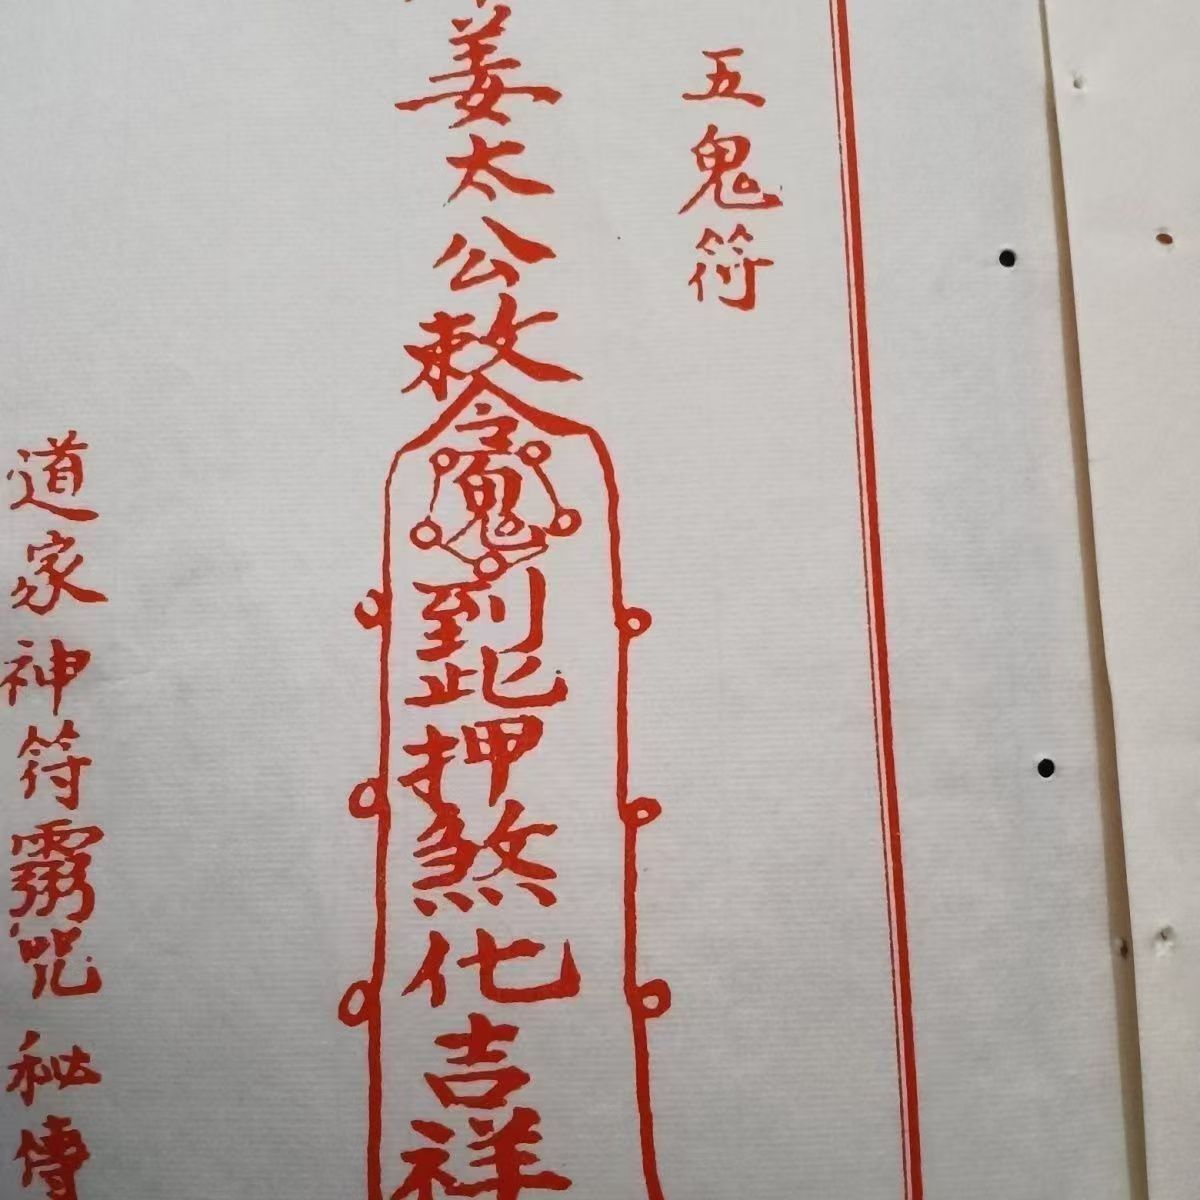 五鬼符
姜太公敕令鬼到此押煞化吉祥
道家神符靈咒秘傳